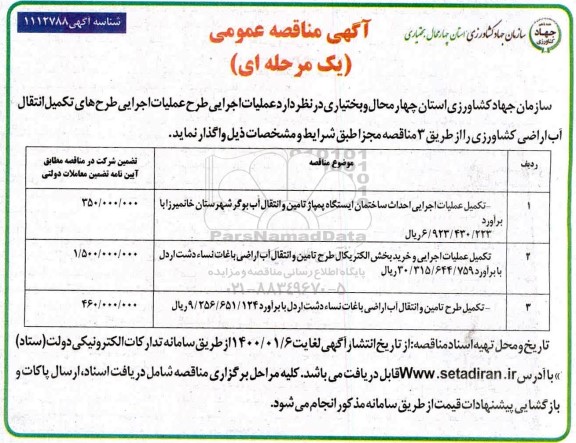 شناسه آگهی ۱۱۱۲۷۸۸
جهاد کشاورزی
سازمان جهاد کشاورزی استان چهارمحال و بختیاری
آگهی مناقصه عمومی
(یک مرحله ای)
سازمان جهاد کشاورزی استان چهارمحال و بختیاری در نظر دارد عملیات اجرایی طرح عملیات اجرایی طرح های تکمیل انتقال
آب اراضی کشاورزی را از طریق ۳ مناقصه مجزا طبق شرایط و مشخصات ذیل واگذار نماید.
ردیف
موضوع مناقصه
تضمین شرکت در مناقصه مطابق
آیین نامه تضمین معاملات دولتی
۱
-تکمیل عملیات اجرایی احداث ساختمان ایستگاه پمپاژ تامین و انتقال آب بوگر شهرستان خانمیرزا با
برآورد
۶/۹۲۳/۴۳۰/۲۲۳ ریال
۳۵۰/۰۰۰/۰۰۰
۲
تکمیل عملیات اجرایی و خرید بخش الکتریکال طرح تامین و انتقال آب اراضی باغات نساء دشت اردل
با برآورد ۳۰/۳۱۵/۶۴۴/۷۵۹ ریال
۱/۵۰۰/۰۰۰/۰۰۰
۳
-تکمیل طرح تامین و انتقال آب اراضی باغات نساء دشت اردل با برآورد ۹/۲۵۶/۶۵۱/۱۲۴ ریال
۴۶۰/۰۰۰/۰۰۰
ParsNamadData
پایگاه اطلاع رسانی مناقصه و مزایده
۰۲۱-۸۸۳۴۹۶۷۰-۵
تاریخ و محل تهیه اسناد مناقصه: از تاریخ انتشار آگهی لغایت ۱۴۰۰/۰۱/۶ از طریق سامانه تدارکات الکترونیکی دولت (ستاد)
»با آدرس Www.setadiran.ir قابل دریافت می باشد. کلیه مراحل برگزاری مناقصه شامل دریافت اسناد، ارسال پاکات و
بازگشایی پیشنهادات قیمت از طریق سامانه مذکور انجام می شود.